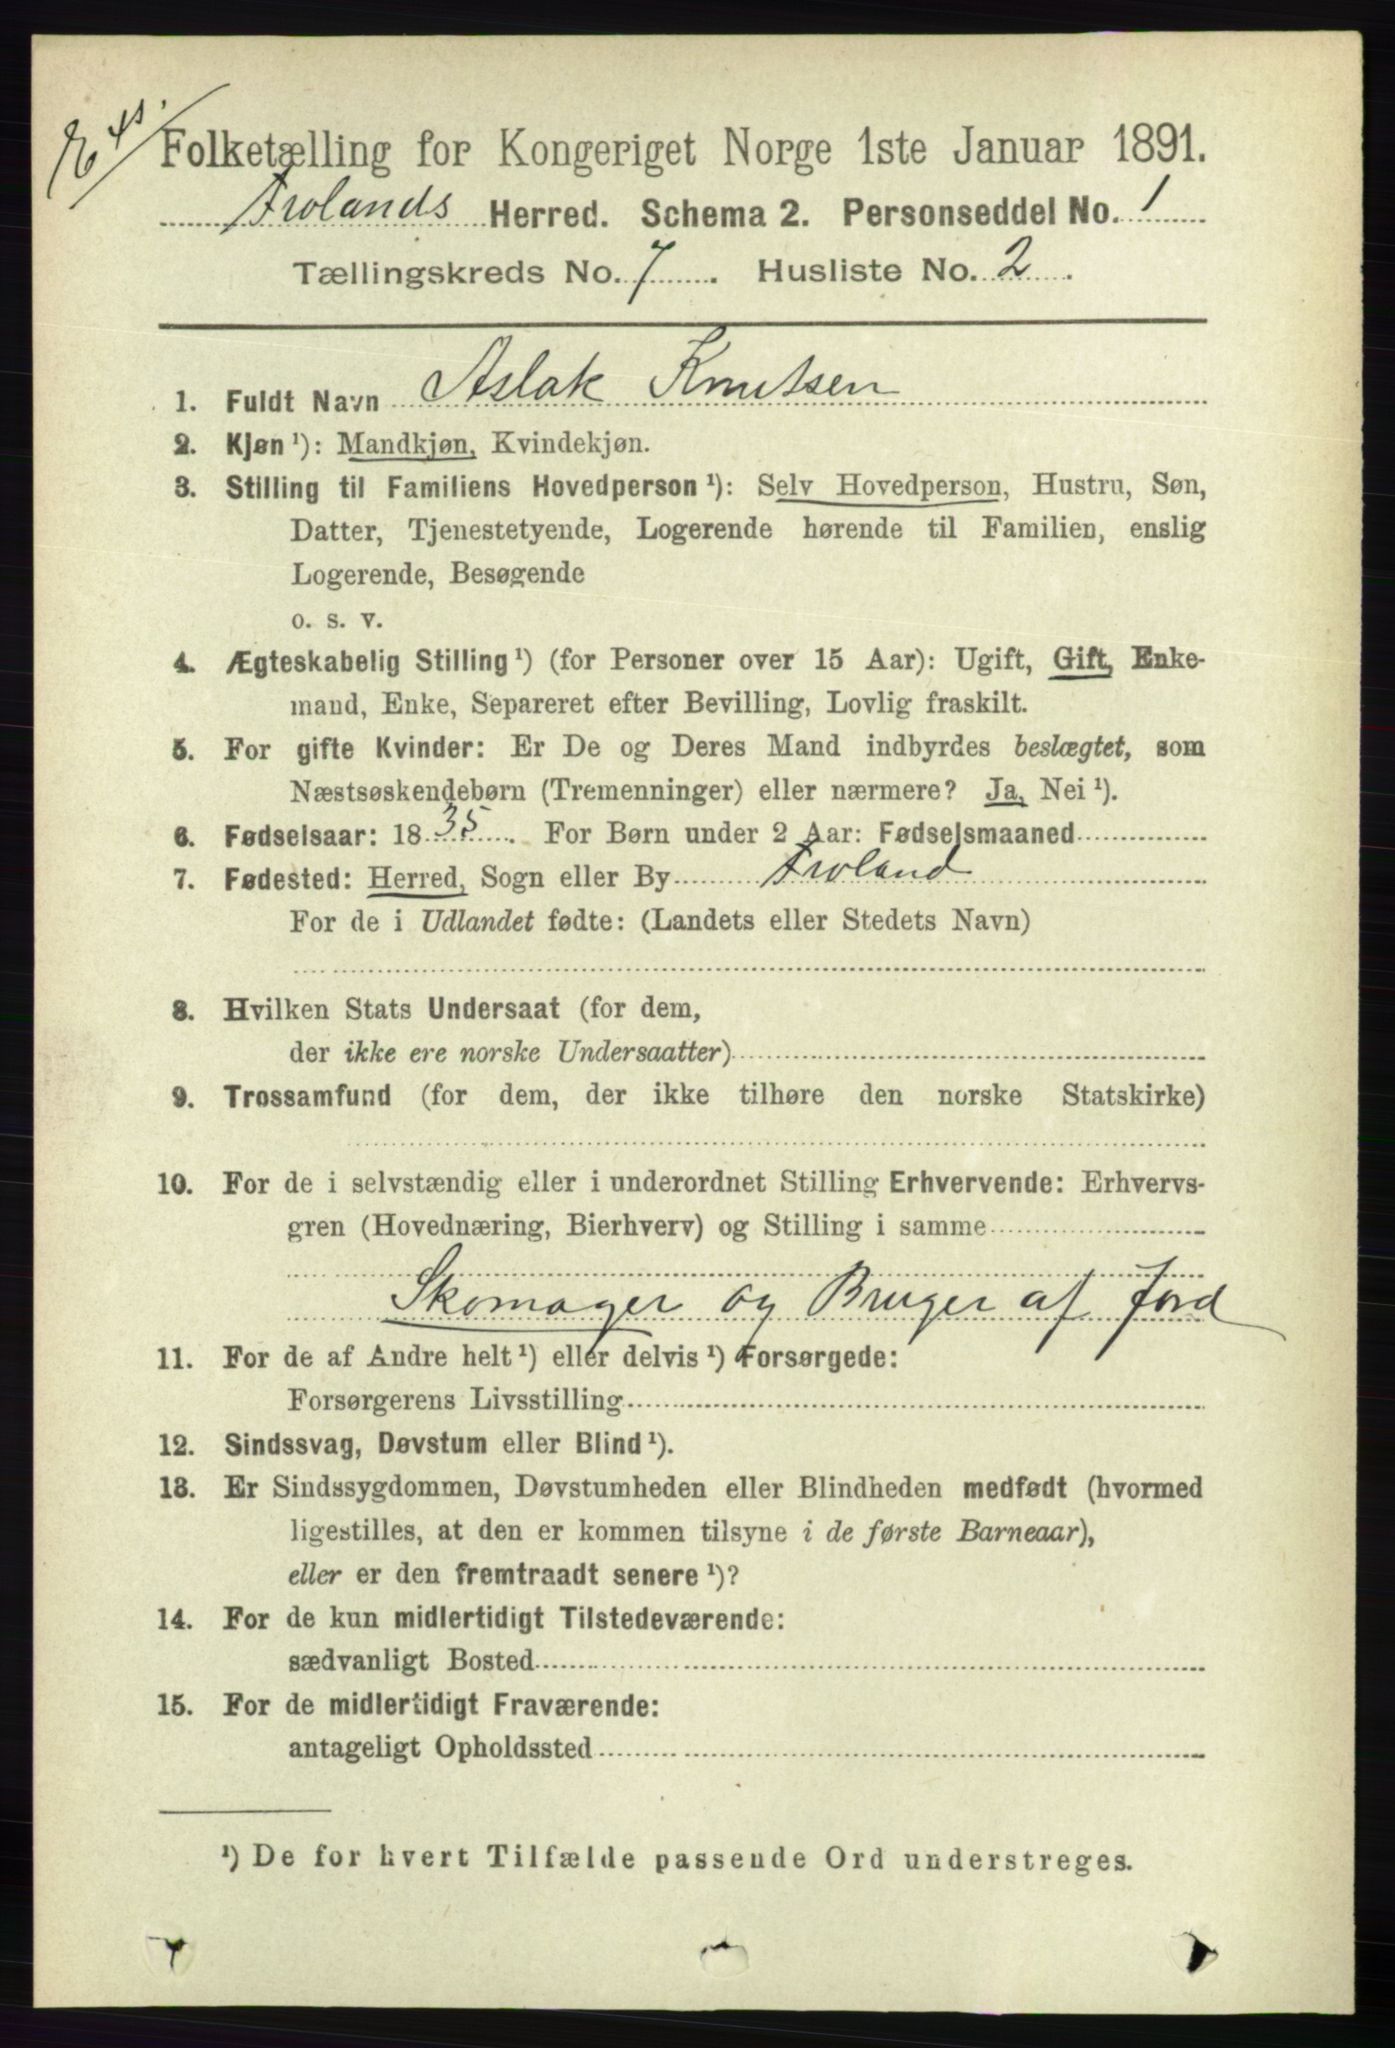 Folketælling for Kongeriget Norge 1ste Januar 1891.
Frolands Herred. Schema 2. Personseddel No. 1
Tællingskreds No. 7. Husliste No. 2.
1. Fuldt Navn Aslak Knutsen
2. Kjøn ¹): Mandkjøn, Kvindekjøn.
3. Stilling til Familiens Hovedperson ¹): Selv Hovedperson, Hustru, Søn,
Datter, Tjenestetyende, Logerende hørende til Familien, enslig
Logerende, Besøgende
o. s. v.
4. Ægteskabelig Stilling ¹) (for Personer over 15 Aar): Ugift, Gift, Enke-
mand, Enke, Separeret efter Bevilling, Lovlig fraskilt.
5. For gifte Kvinder: Er De og Deres Mand indbyrdes beslægtet, som
Næstsøskendebørn (Tremenninger) eller nærmere? Ja, Nei ¹).
6. Fødselsaar: 1835. For Børn under 2 Aar: Fødselsmaaned
7. Fødested: Herred, Sogn eller By Froland
For de i Udlandet fødte: (Landets eller Stedets Navn)
8. Hvilken Stats Undersaat (for dem,
der ikke ere norske Undersaatter)
9. Trossamfund (for dem, der ikke tilhøre den norske Statskirke)
10. For de i selvstændig eller i underordnet Stilling Erhvervende: Erhvervs-
gren (Hovednæring, Bierhverv) og Stilling i samme
Skomager og Bruger af Jord
11. For de af Andre helt ¹) eller delvis ¹) Forsørgede:
Forsørgerens Livsstilling
12. Sindssvag, Døvstum eller Blind ¹).
13. Er Sindssygdommen, Døvstumheden eller Blindheden medfødt (hvormed
ligestilles, at den er kommen tilsyne i de første Barneaar),
eller er den fremtraadt senere ¹)?
14. For de kun midlertidigt Tilstedeværende:
sædvanligt Bosted
15. For de midlertidigt Fraværende:
antageligt Opholdssted
¹) De for hvert Tilfælde passende Ord understreges.